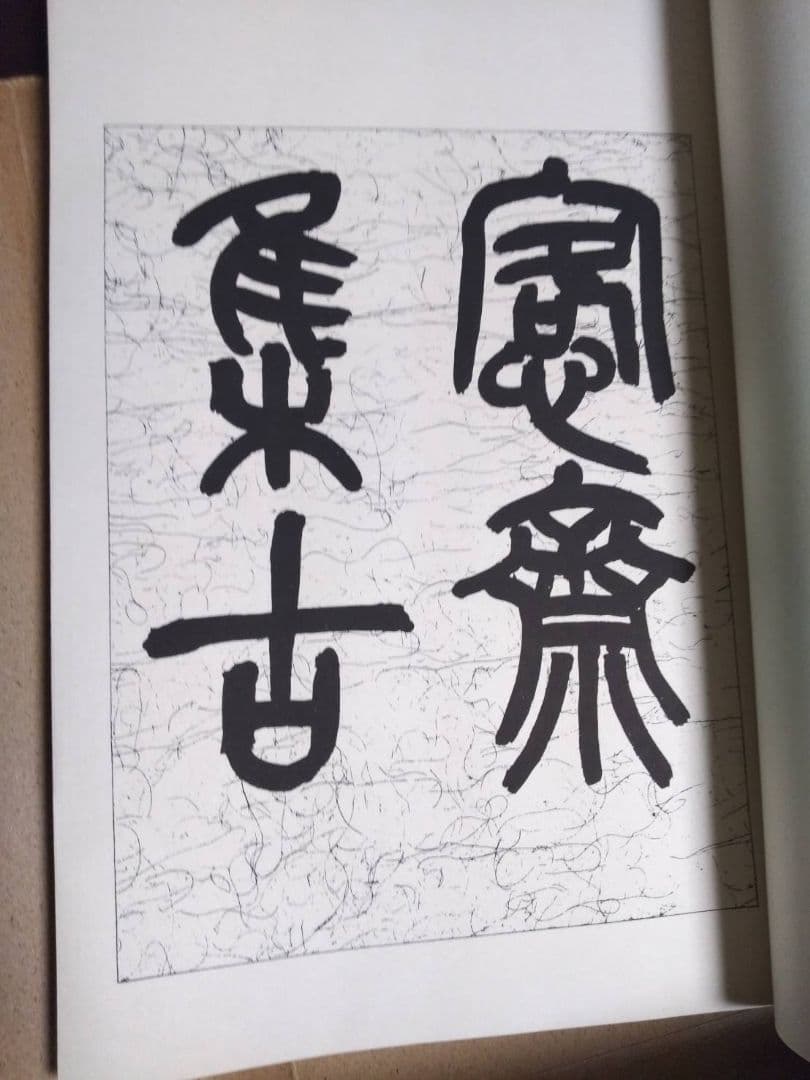 愙齋
集古